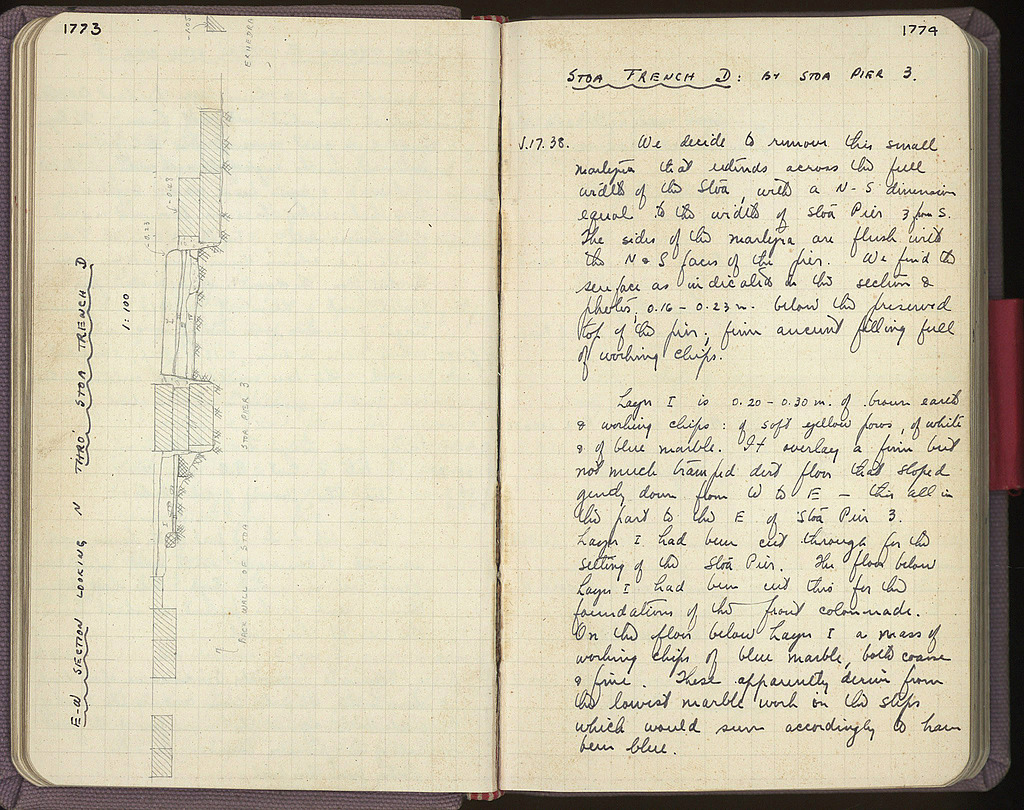 1773
E-W SECTION LOOKING N THRO' STOA TRENCH D
1:100
-0.23
-0.68
-1.05
I
II
III
I
BACK WALL OF STOA
STOA PIER 3
EXHEDRA
1774
STOA TRENCH D: BY STOA PIER 3.
V.17.38. We decide to remove this small
martyra that extends across the full
width of the Stoa, with a N-S dimension
equal to the width of Stoa Pier 3 from S.
The sides of the martyra are flush with
the N & S faces of the pier. We find the
surface as indicated in the section &
photos, 0.16 - 0.23 m. below the preserved
top of the pier; firm ancient filling full
of working chips.
Layer I is 0.20 - 0.30 m. of brown earth
& working chips: of soft yellow poros, of white
& of blue marble. It overlay a firm but
not much tramped dirt floor that sloped
gently down from W to E — this all in
the part to the E of Stoa Pier 3.
Layer I had been cut through for the
setting of the Stoa Pier. The floor below
Layer I had been cut thro' for the
foundations of the front colonnade.
On the floor below Layer I a mass of
working chips of blue marble, both coarse
& fine. These apparently derive from
the lowest marble work on the steps
which would seem accordingly to have
been blue.